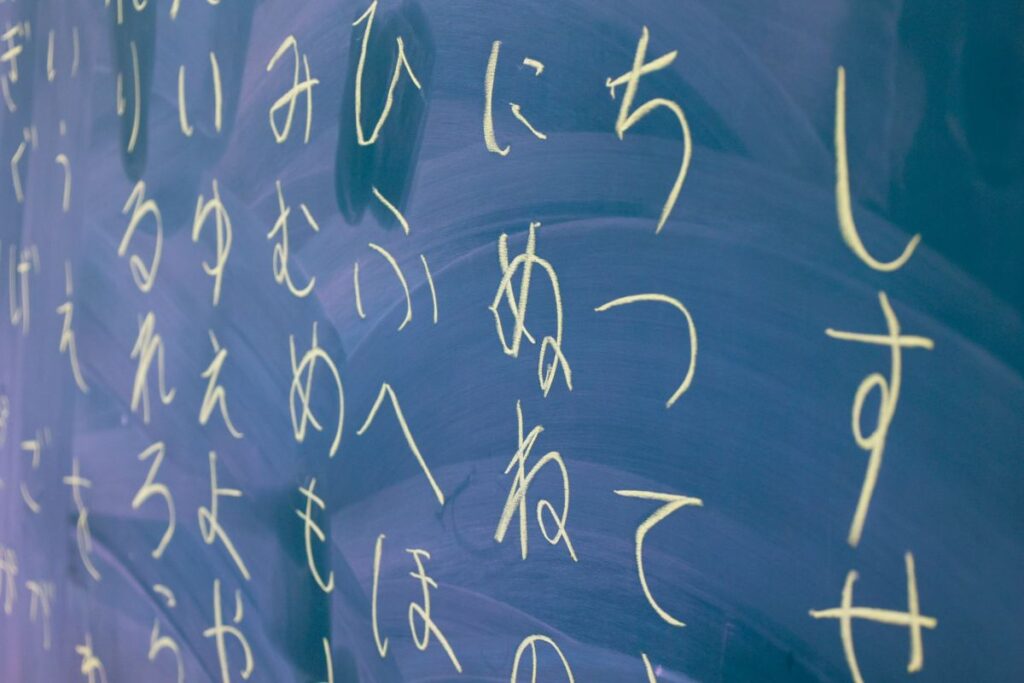 しすせ
ちつて
にぬねの
ひふへほ
みむめも
いゆえよや
りるれろら
いうえを
ぎぐげご